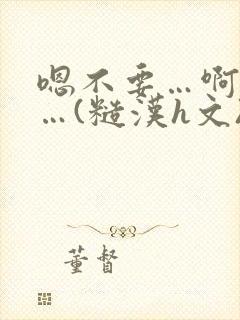 嗯不要…啊
…(糙漢h文
董督